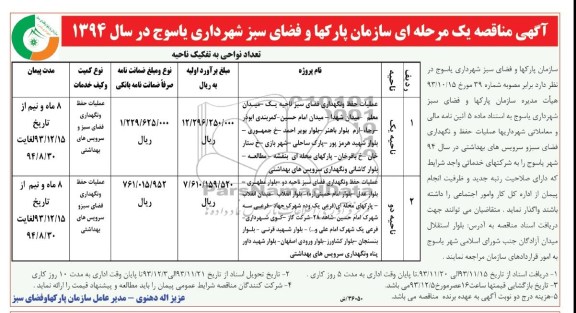 آگهی مناقصه یک مرحله ای سازمان پارکها و فضای سبز شهرداری یاسوج در سال ۱۳۹۴
سازمان پارکها و فضای سبز شهرداری یاسوج در
نظر دارد برابر مصوبه شماره ۳۹ مورخ ۹۳/۱۰/۱۵
هیأت مدیره سازمان پارکها و فضای سبز
شهرداری یاسوج به استناد ماده ۵ آئین نامه مالی
و معاملاتی شهرداریها عملیات حفظ و نگهداری
فضای سبزو سرویس های بهداشتی در سال ۹۴
شهر یاسوج را به شرکتهای خدماتی واجد شرایط
که دارای صلاحیت رتبه جدید و ظرفیت انجام
پیمان از اداره کل کار وامور اجتماعی را داشته
باشند واگذار نماید. متقاضیان می توانند جهت
دریافت اسناد مناقصه به آدرس: بلوار استقلال
میدان آزادگان جنب شورای اسلامی شهر یاسوج
به امور قراردادهای سازمان مراجعه نمایند.
تعداد نواحی به تفکیک ناحیه
ردیف
ناحیه
نام پروژه
مبلغ برآورد اولیه به ریال
نوع ومبلغ ضمانت نامه صرفاً ضمانت نامه بانکی
نوع کمیت وکیف خدمات
مدت پیمان
۱
ناحیه یک
عملیات حفظ ونگهداری فضای سبز ناحیه یک -میدان
معلم - میدان شهدا- میدان امام حسین-کمربندی ابوذر
بلوار شهید هرمز پور -پارک ساحلی -شهر بازی -خ ستار
خان -خ باقرخان - پارکهای محله ای بنفشه - مطالعه -
بلوار کاشانی ونگهداری سرویس های بهداشتی
۱۲/۲۹۶/۲۵۰/۰۰۰ ریال
۱/۲۲۹/۶۲۵/۰۰۰ ریال
عملیات حفظ ونگهداری فضای سبز و سرویس های بهداشتی
۸ ماه و نیم از تاریخ ۹۳/۱۲/۱۵لغایت ۹۴/۸/۳۰
۲
ناحیه دو
عملیات حفظ ونگهداری فضای سبز ناحیه دو -بلوار مطهری -
شهرک امام حسین -شاهد ۲۸-شرکت گاز -کوی شهرداری-
فرعی یک شهرک امام علی و..) - بلوار شهید قرنی - بلوار
بنسنجان -بلوار کشاورز -بلوار ورودی اصفهان- بلوار شهید داور
پناه ونگهداری سرویس های بهداشتی
۷/۶۱۰/۱۵۹/۵۲۰ ریال
۷۶۱/۰۱۵/۹۵۲ ریال
عملیات حفظ ونگهداری فضای سبز و سرویس های بهداشتی
۸ ماه و نیم از تاریخ ۹۳/۱۲/۱۵لغایت ۹۴/۸/۳۰
۱- دریافت اسناد از تاریخ ۹۳/۱۱/۱۵الی ۹۳/۱۱/۲۰تا پایان وقت اداری به مدت ۵ روز کاری .
۲- تاریخ تحویل اسناد از تاریخ ۹۳/۱۱/۲۱الی ۹۳/۱۲/۳تا پایان وقت اداری به مدت ۱۰ روز کاری
۳- تاریخ بازگشایی قیمتها ساعت۱۶عصرمورخ۹۳/۱۲/۵می باشد.
۴- شرکت کنندگان مناقصه شرایط عمومی پیمان را باید مطالعه و پیشنهاد قیمت را ارائه نماید .
۵-هزینه درج دو نوبت آگهی به عهده برنده مناقصه می باشد.
۳۶/۰۵۰-ش
عزیز اله دهنوی - مدیر عامل سازمان پارکهاوفضای سبز